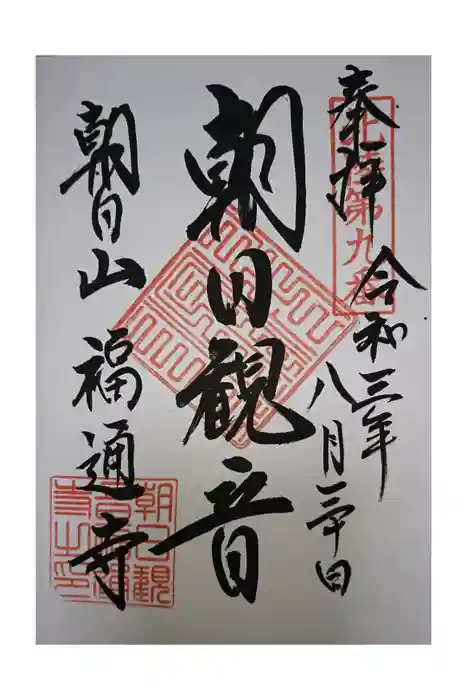 奉拝
北陸第九番
令和三年
八月 日
朝日観音
朝日山 福通寺
朝日観
寺之印